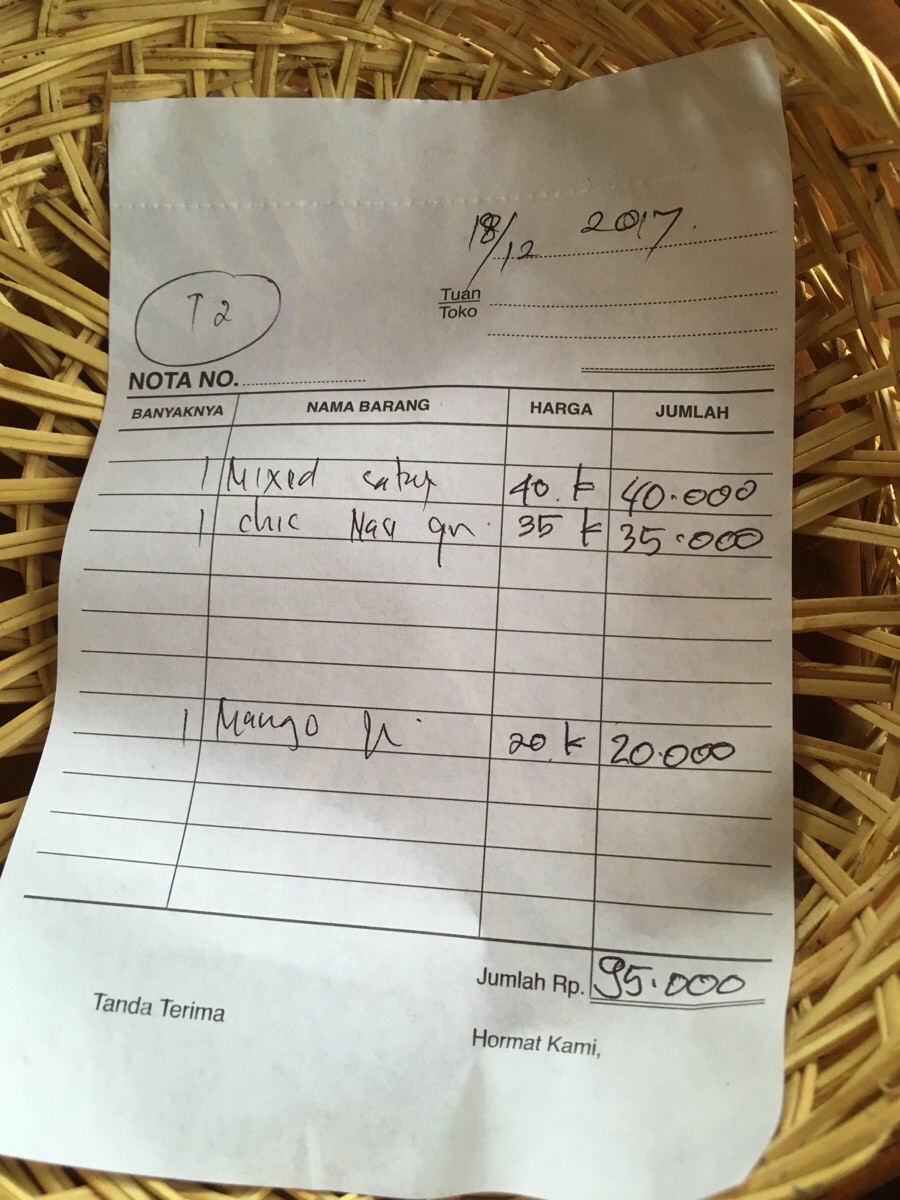 18/12 2017.
T2
Tuan
Toko
NOTA NO.
BANYAKNYA NAMA BARANG HARGA JUMLAH
1 Mixed satay 40.k 40.000
1 chic Nasi gn. 35 k 35.000
1 Mango 20.k 20.000
Jumlah Rp. 95.000
Tanda Terima
Hormat Kami,